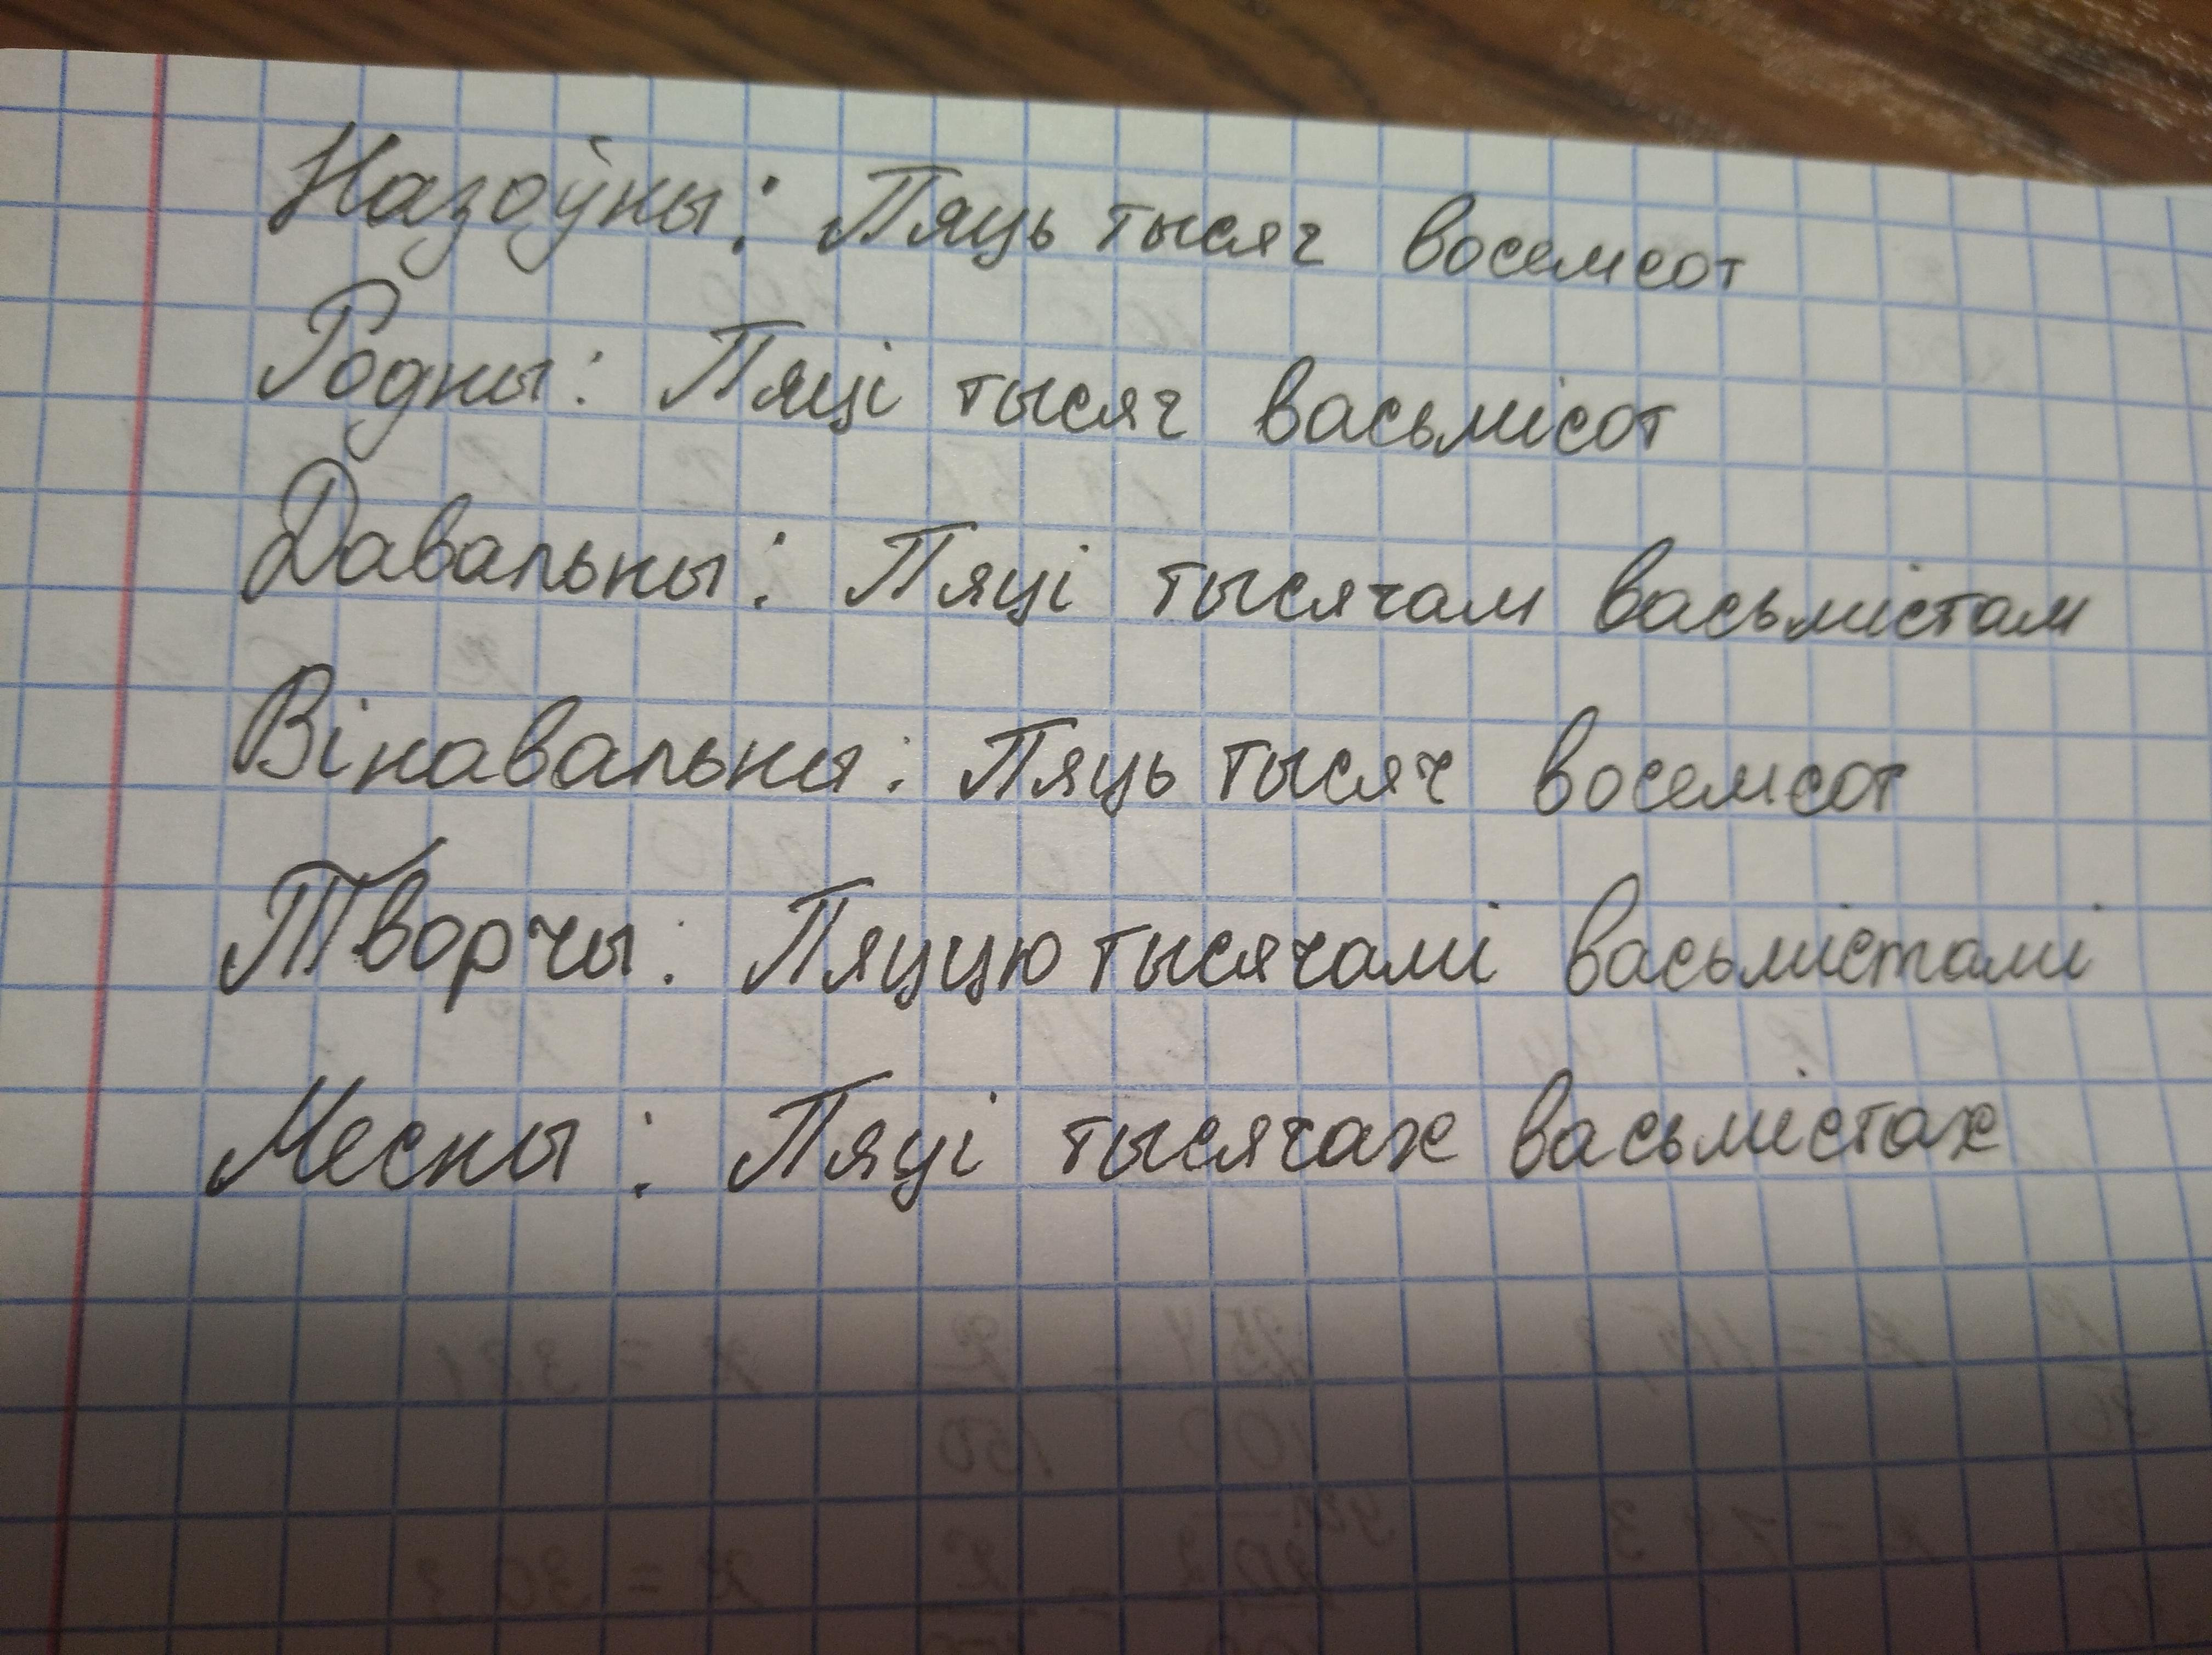 Назоўны: Пяць тысяч восемсот
Родны: Пяці тысяч васьмісот
Давальны: Пяці тысячам васьмістам
Вінавальны: Пяць тысяч восемсот
Творчы: Пяццю тысячамі васьмістамі
Месны: Пяці тысячах васьмістах